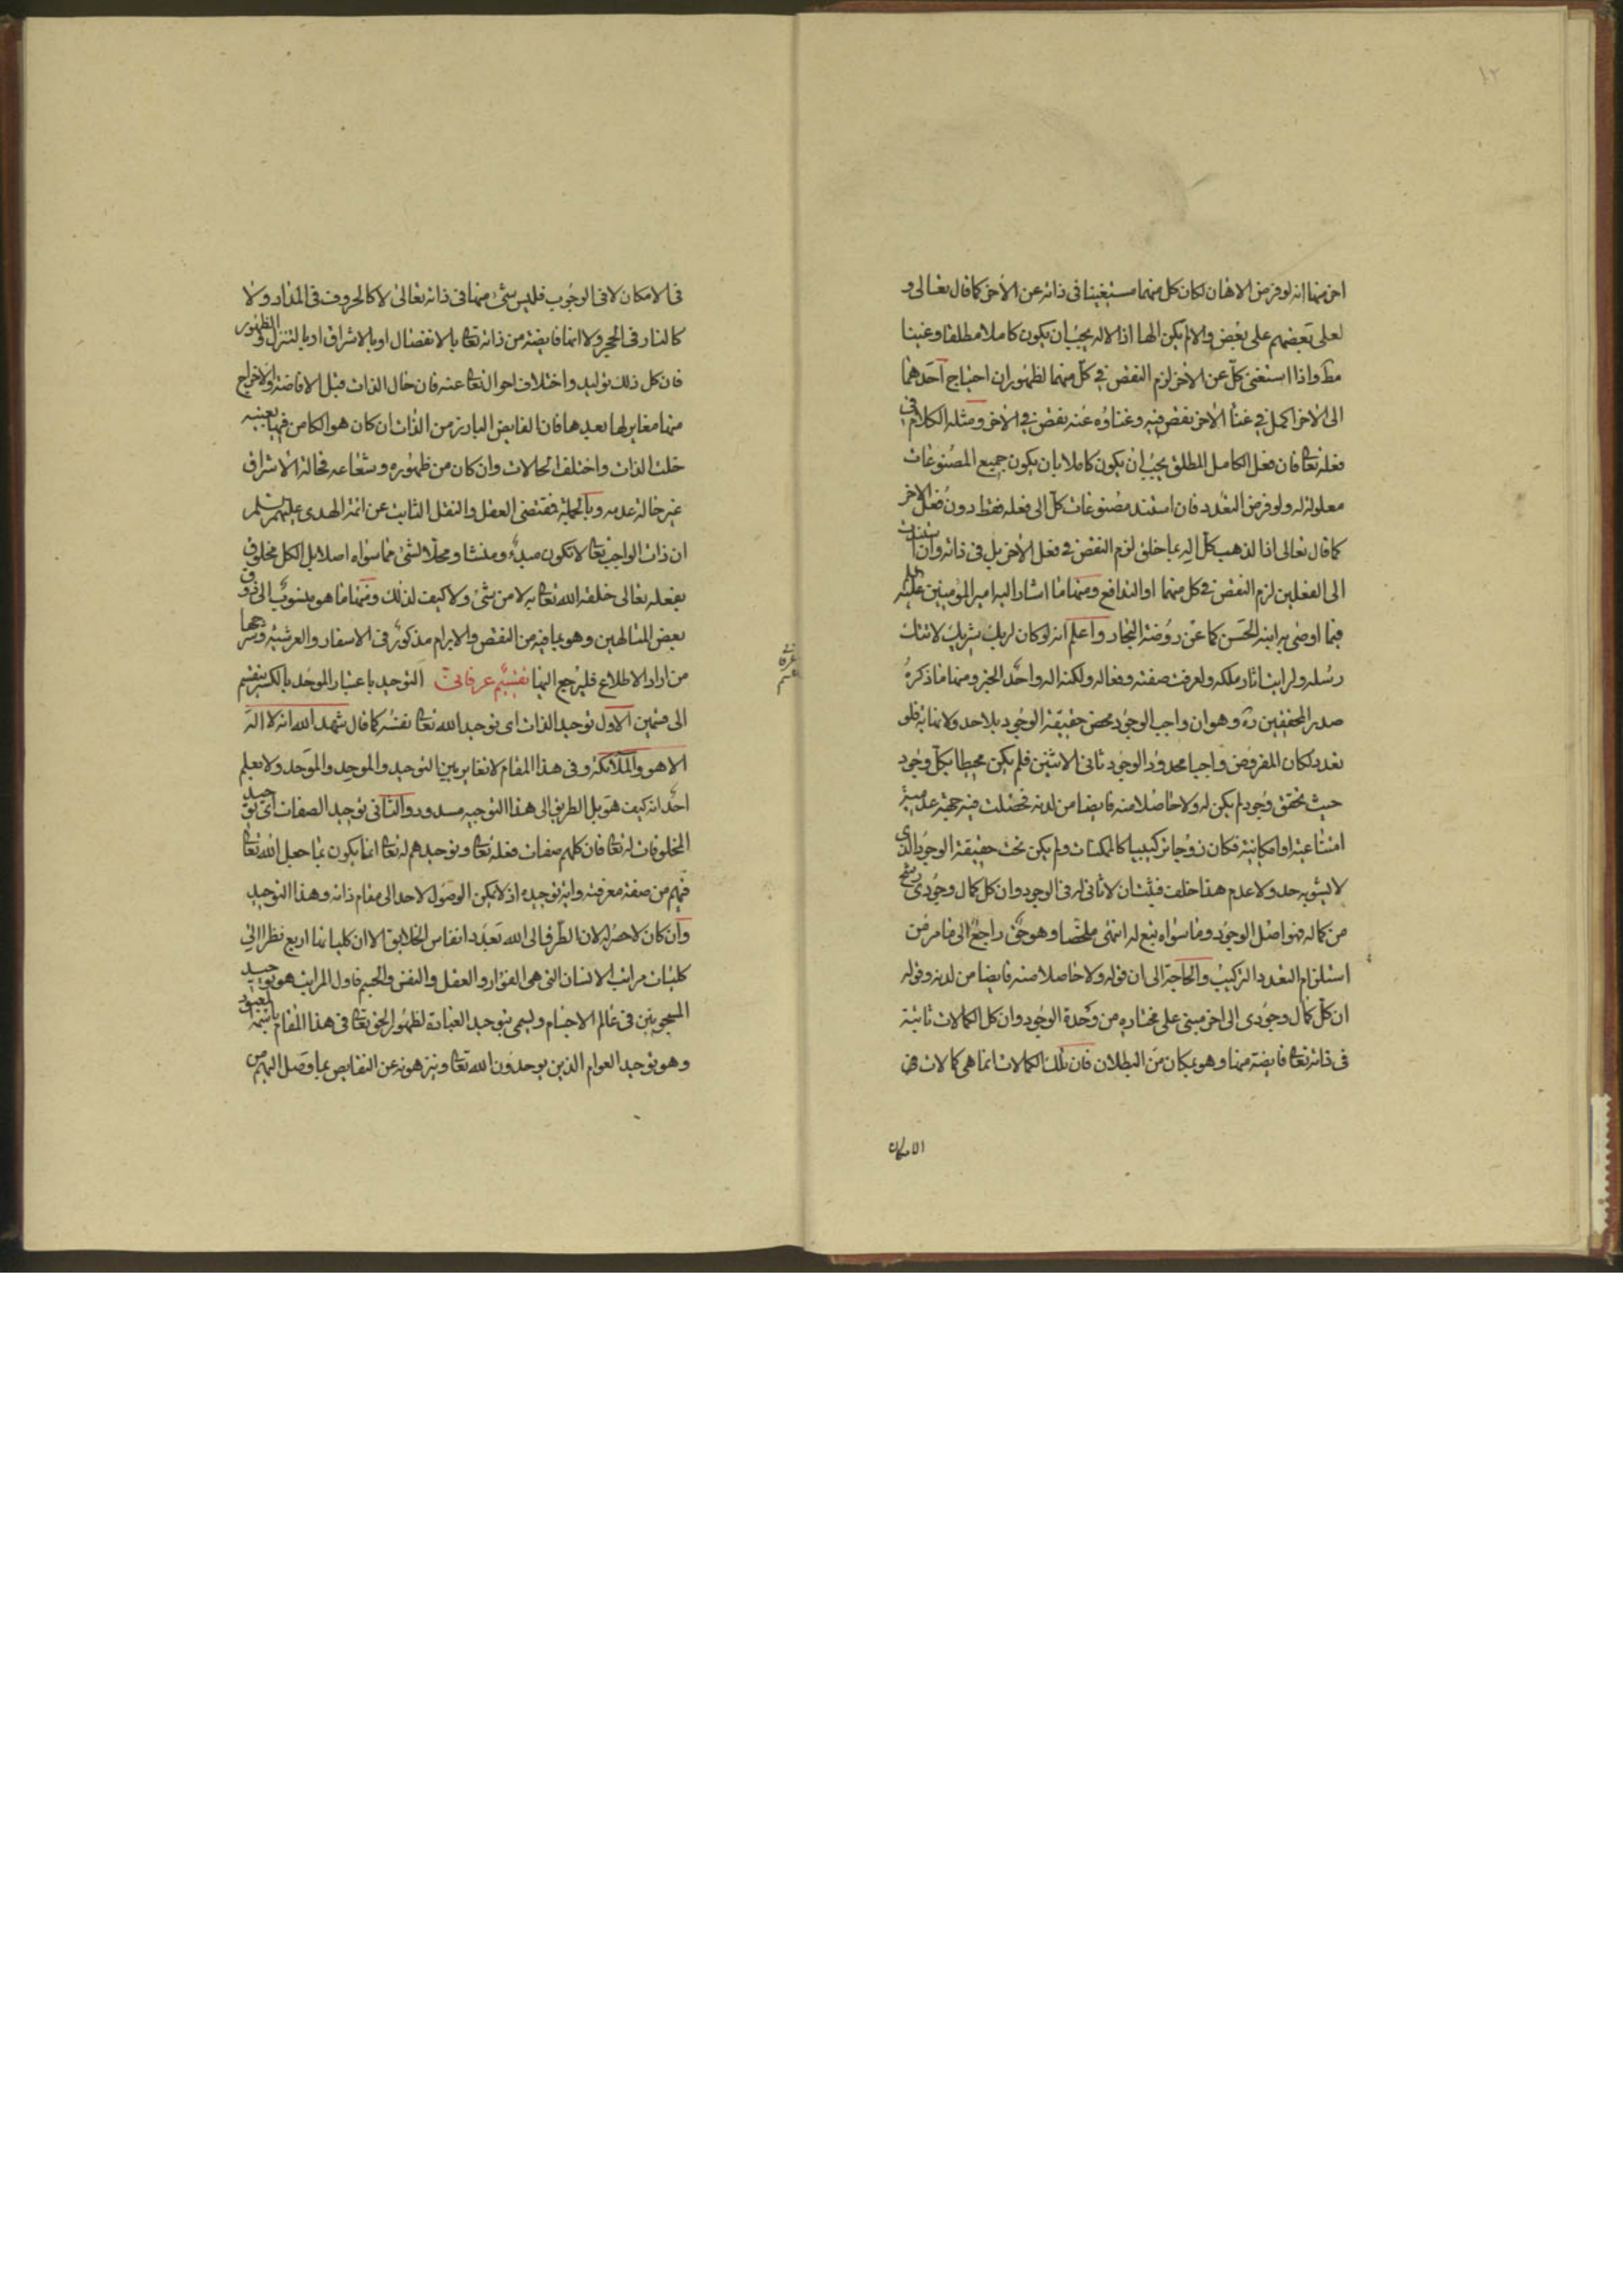 ١٢
اخر منها انه لو فرض الالهان لكان كل منهما مستغنيا فى ذاته عن الاخر كما قال تعالى و
لعلى بعضهم على بعض والا لم يكن الها اذ الاله يجب ان يكون كاملا مطلقا وغنيا
مط واذا استغنى كل عن الاخر لزم النقص فى كل منهما لظهور ان احتياج احدهما
الى الاخر اكمل فى غنا الاخر نقص فيه وغناؤه عنه نقص فى الاخر ومثله الكلام فى
فعله تعالى فان فعل الكامل المطلق يجب ان يكون كاملا بان يكون جميع المصنوعات
معلولة له ولو فرض التعدد فان استند مصنوعات كل الى فعله فقط دون فعل الاخر
كما قال تعالى اذا لذهب كل اله بما خلق لزم النقص فى فعل الاخر بل فى ذاته وان استندت
الى الفعلين لزم النقص فى كل منهما او التدافع ومنها ما اشار اليه امير المؤمنين عليه
فيما اوصى به ابنه الحسن كما عن روضة البحار واعلم انه لو كان لربك شريك لاتتك
رسله ولرايت اثار ملكه ولعرفت صفته وفعاله ولكنه اله واحد الخبر ومنها ما ذكره
صدر المحققين ره وهو ان واجب الوجود محض حقيقة الوجود بلا حد ولا نهاية فلو
تعدد لكان المفروض واجبا محدود الوجود ثانى الاثنين فلم يكن محيطا بكل وجود
حيث تحقق وجود لم يكن له ولا حاصلا منه فايضا من لدنه فحصلت فيه جهة عدمية
امتناعية او امكانية فكان زوجا تركيبيا كالممكنات ولم يكن تحت حقيقة الوجود الذى
لا يشوبه حد ولا عدم هذا خلف فثبت ان لا ثانى له فى الوجود وان كل كمال وجودى رشح
من كماله فهو اصل الوجود وما سواه تبع له انتهى ملخصا وهو حق راجع الى ما مر من
استلزام التعدد التركيب والحاجة الى ان قوله ولا حاصلا منه فايضا من لدنه وقوله
ان كل كمال وجودى الى اخر مبنى على مختاره من وحدة الوجود وان كل الكمالات ثابتة
فى ذاته تعالى فايضة منها وهو بمكان من البطلان فان تلك الكمالات انما هى كمالات
الامكان
فى الامكان لا فى الوجوب فليس شئ منها فى ذاته تعالى لا كالحروف فى المداد ولا
كالنار فى الحجر ولا انها فايضة من ذاته تعالى بالانفصال او بالاشراق او بالتنزل الظهور
فان كل ذلك توليد واختلاف احوال تعالى عنه فان حال الذات قبل الافاضة والاخراج
منها مغاير لها بعدها فان الفايض البارز من الذات ان كان هو الكامن فيها بعينه
خلت الذات واختلف الحالات وان كان من ظهوره وشعاعه فحالة الاشراق
غير حالة عدمه وبالجملة فمقتضى العقل والنقل الثابت عن ائمة الهدى عليهم السلم
ان ذات الواجب تعالى لا تكون مبدء ومنشا ومحلا لشئ مما سواه اصلا بل الكل مخلوق
بفعله تعالى خلقه الله تعالى به لا من شئ ولا كيف لذلك ومنها ما هو منسوب الى ذوق
بعض المتالهين وهو بما فيه من النقض والابرام مذكور فى الاسفار والعرشية وشرحها
من اراد الاطلاع فليرجع اليها تقسيم عرفانى التوحيد باعتبار الموحد بالكسر ينقسم
الى قسمين الاول توحيد الذات اى توحيد الله تعالى نفسه كما قال شهد الله انه لا اله
الا هو والملائكة وفى هذا المقام لا تغاير بين التوحيد والموحد والموحد ولا يعلم
احد انه كيف هو بل الطريق الى هذا التوجيه مسدود والثانى توحيد الصفات اى توحيد
المخلوقات له تعالى فان كلهم صفات فعله تعالى وتوحيدهم له تعالى انما يكون بما جعل الله تعالى
فيهم من صفة معرفته واية توحيده اذ لا يمكن الوصول لاحد الى مقام ذاته وهذا التوحيد
وان كان لا حصر له لان الطرق الى الله بعدد انفاس الخلايق الا ان كلياتها اربع نظرا الى
كليات مراتب الانسان التى هى الفؤاد والعقل والنفس والجسم فاول المراتب هو توحيد
المحجوبين فى عالم الاجسام ويسمى بتوحيد العبادة لظهور الحق تعالى فى هذا المقام باسمه المعبود
وهو توحيد العوام الذين يوحدون الله تعالى وينزهونه عن النقايص بما وصل اليهم من